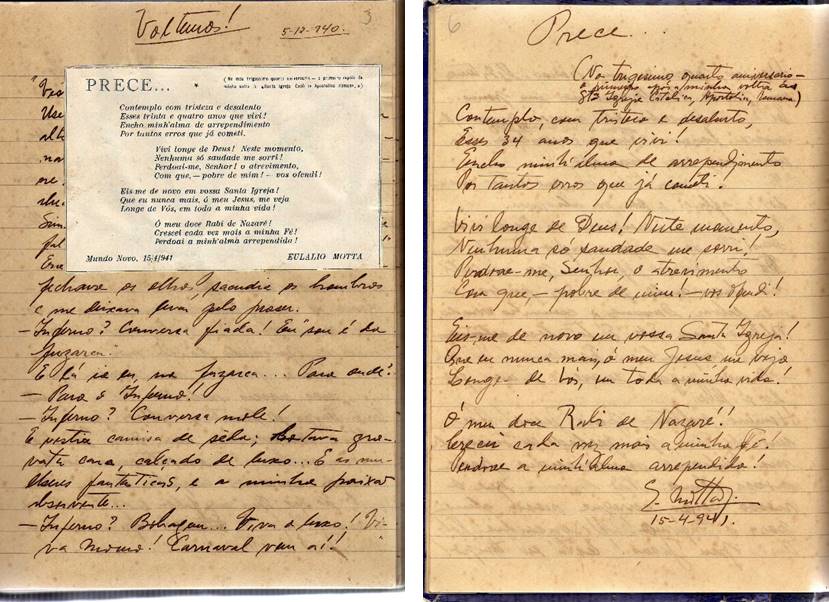 Voltemos!
5-12-940.
3
PRECE...
(No meu trigesimo quarto aniversario — o primeiro após a minha volta à Santa Igreja Católica Apostolica Romana.)
Contemplo com tristeza e desalento
Esses trinta e quatro anos que vivi!
Encho minh'alma de arrependimento
Por tantos erros que já cometi.
Vivi longe de Deus! Neste momento,
Nenhuma só saudade me sorri!
Perdoai-me, Senhor! o atrevimento
Com que, — pobre de mim! — vos ofendi!
Eis-me de novo em vossa Santa Igreja!
Que eu nunca mais, ó meu Jesus, me veja
Longe de Vós, em toda a minha vida!
Ó meu doce Rabi de Nazaré!
Crescei cada vez mais a minha Fé!
Perdoai a minh'alma arrependida!
Mundo Novo, 15/4/941
EULALIO MOTTA
fechava os olhos, sacudia os hombros
e me deixava levar pelo prazer.
— Inferno? Conversa fiada! Eu sou é da
fuzarca.
E lá ia eu, na fuzarca... Para onde?
— Para o Inferno!
— Inferno? Conversa mole!
E vestia camisa de sêda; botava gra-
vata cara, calçado de luxo... E as mu-
lheres fantasticas, e a minha paixão
absorvente...
— Inferno? Bobagem... Viva o luxo! Vi-
va Momo! Carnaval vem aí!
6
Prece...
(No trigesimo quarto aniversario —
o primeiro após a minha volta á
Sta Igreja Catolica, Apostolica, Romana)
Contemplo, com tristeza e desalento,
Esses 34 anos que vivi!
Encho minh'alma de arrependimento
Por tantos erros que já cometi!
Vivi longe de Deus! Neste momento,
Nenhuma só saudade me sorri!
Perdoae-me, Senhor, o atrevimento
Com que, — pobre de mim! — vos ofendi!
Eis-me de novo em vossa Santa Igreja!
Que eu nunca mais, ó meu Jesus me veja
Longe de Vós, em toda a minha vida!
Ó meu doce Rabi de Nazaré!
Crescei cada vez mais a minha Fé!
Perdoae a minh'alma arrependida!
E. Motta
15-4-941.